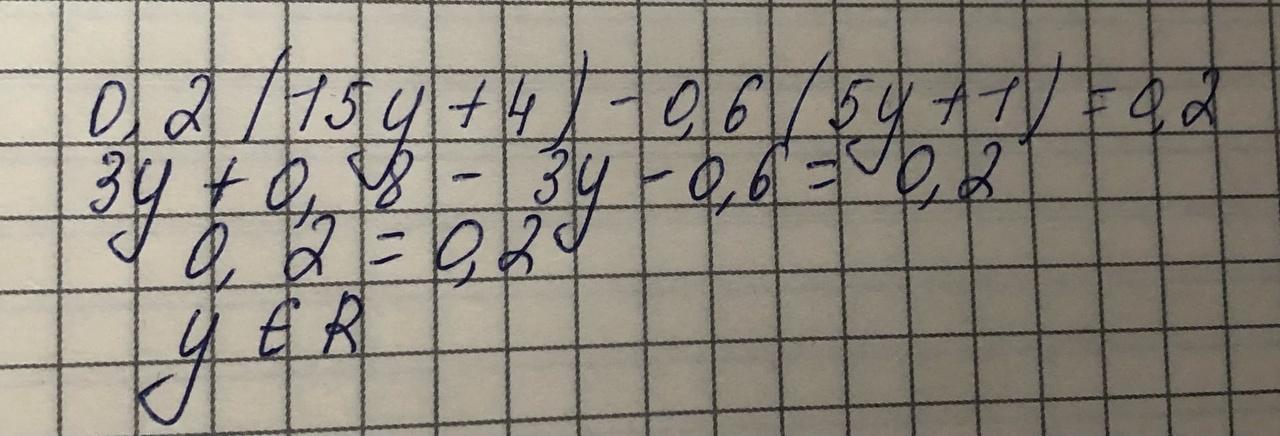 0,2(15y+4)-0,6(5y+1)=0,2
3y+0,8-3y-0,6=0,2
0,2=0,2
y ∈ R